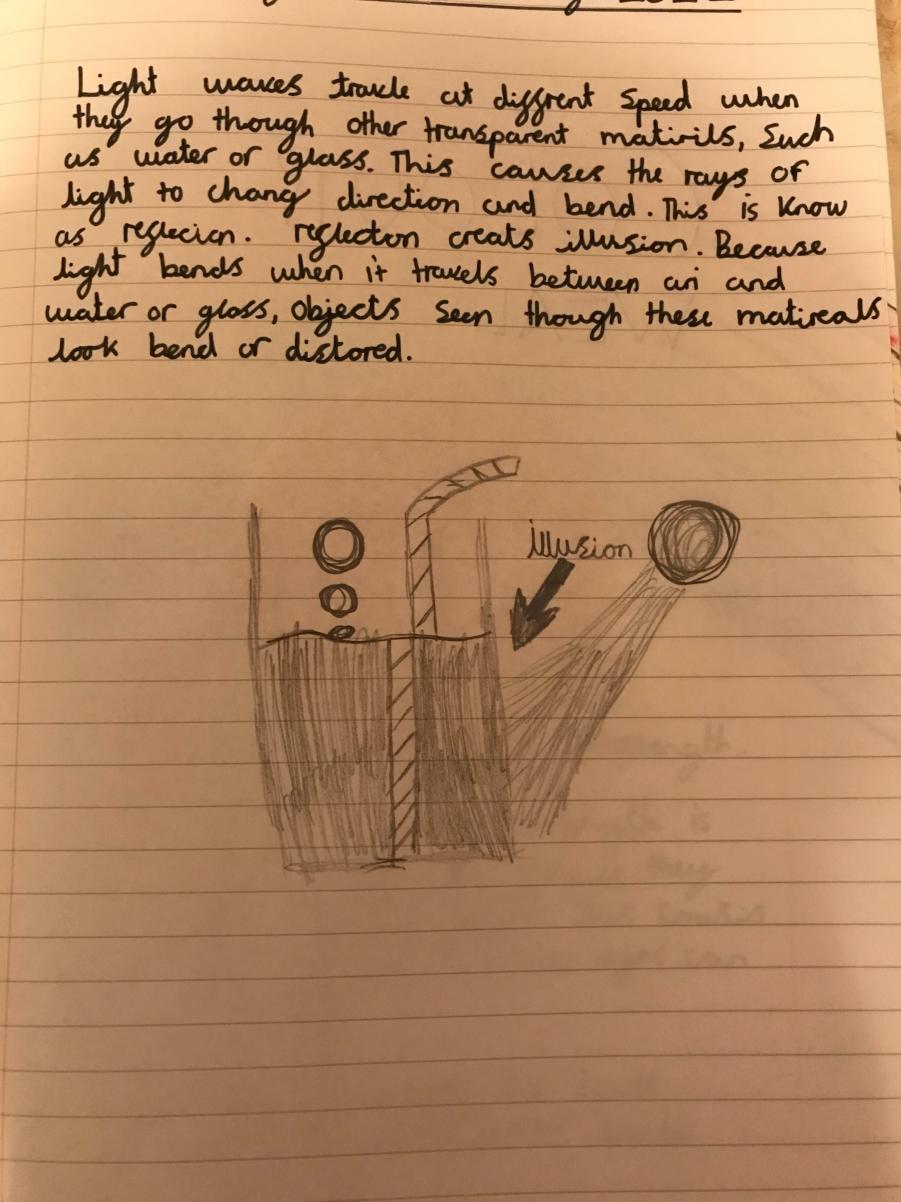 Light waves travle at diffrent speed when
they go though other transparent matirils, such
as water or glass. This causes the rays of
light to chang direction and bend. This is know
as reflecion. reflecton creats illusion. Because
light bends when it travels between ari and
water or glass, objects seen though these matireals
look bend or distored.
illusion